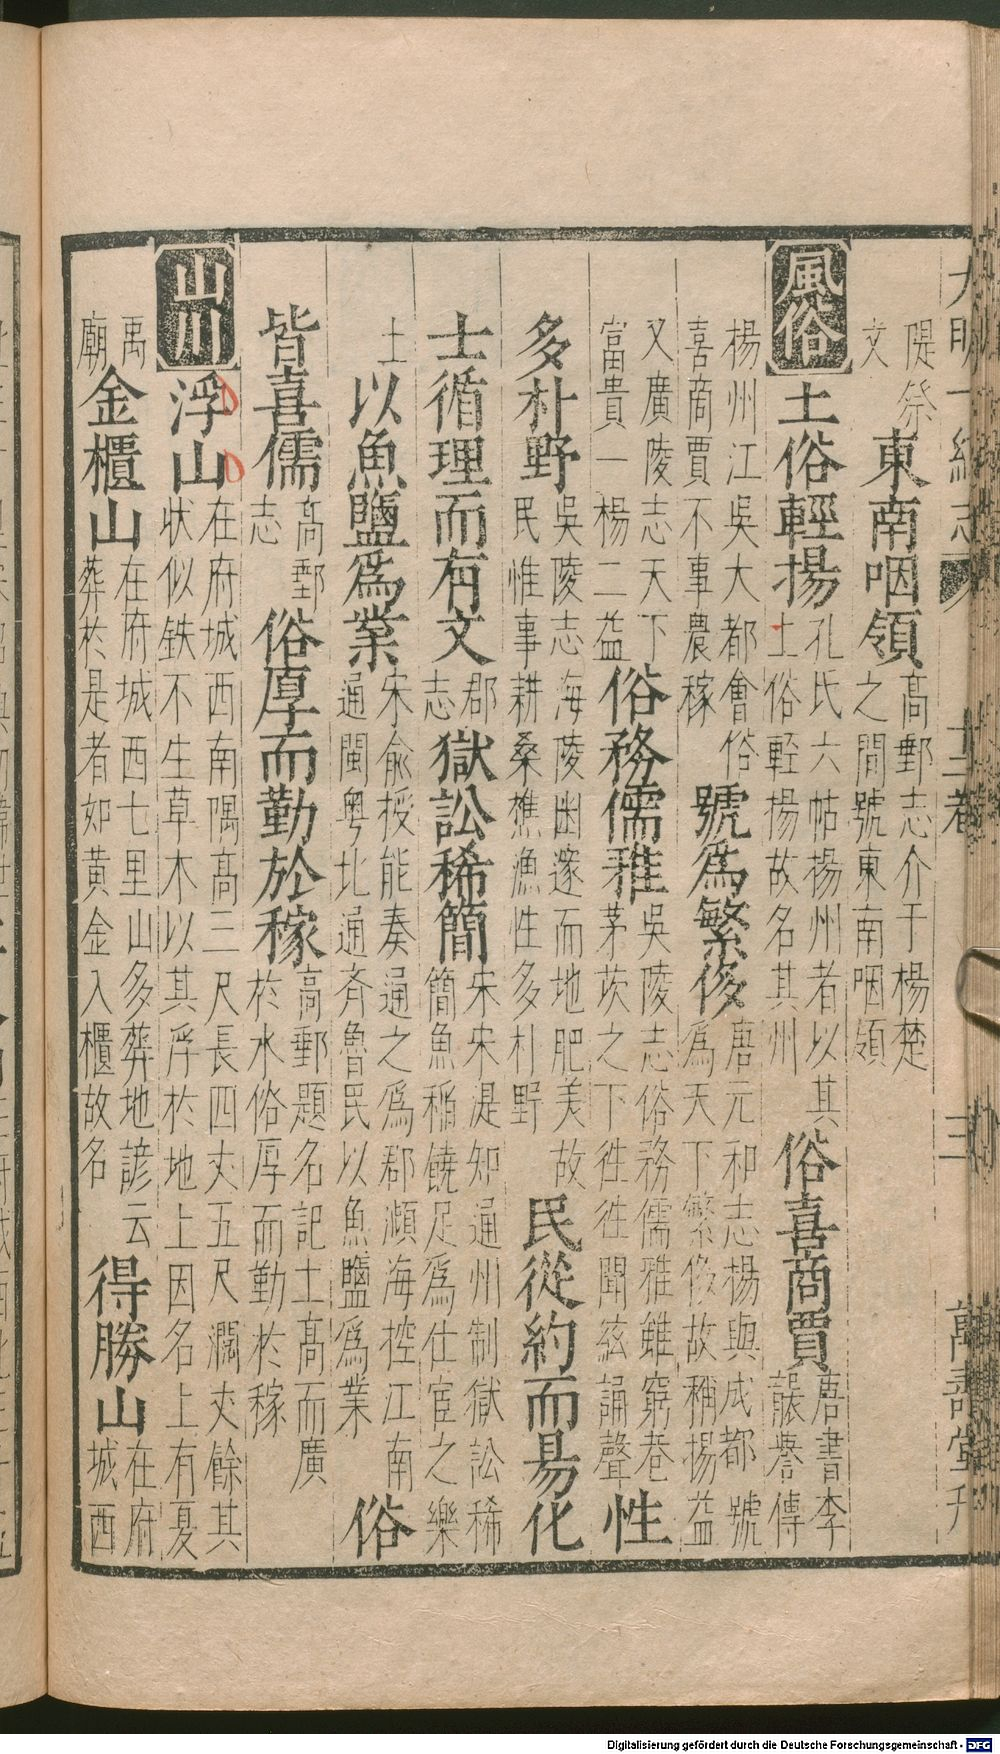 大明一統志 十二卷 三 萬壽堂刊
隄祭文東南咽領高郵志介于楊楚之間號東南咽領
風俗土俗輕揚孔氏六帖楊州者以其土俗輕揚故名其州俗喜商賈唐書李襲譽傳
楊州江吳大都會俗喜商賈不事農稼號爲繁侈唐元和志楊與成都號爲天下繁侈故稱揚益
又廣陵志天下富貴一楊二益俗務儒雅吳陵志俗務儒雅雖窮巷茅茨之下徃徃聞絃誦聲性
多朴野吳陵志海陵幽邃而地肥美故民惟事耕桑樵漁性多朴野民從約而易化
士循理而有文郡志獄訟稀簡宋宋湜知通州制獄訟稀簡魚稲饒足爲仕宦之樂
土以魚鹽爲業宋俞授能奏通之爲郡瀕海控江南通閩粤北通齊魯民以魚鹽爲業俗
皆喜儒高郵志俗厚而勤於稼高郵題名記土高而廣於水俗厚而勤於稼
山川浮山在府城西南隅高三尺長四丈五尺濶丈餘其狀似鉄不生草木以其浮於地上因名上有夏
禹廟金櫃山在府城西七里山多葬地諺云葬於是者如黄金入櫃故名得勝山在府城西
Digitalisierung gefördert durch die Deutsche Forschungsgemeinschaft - DFG